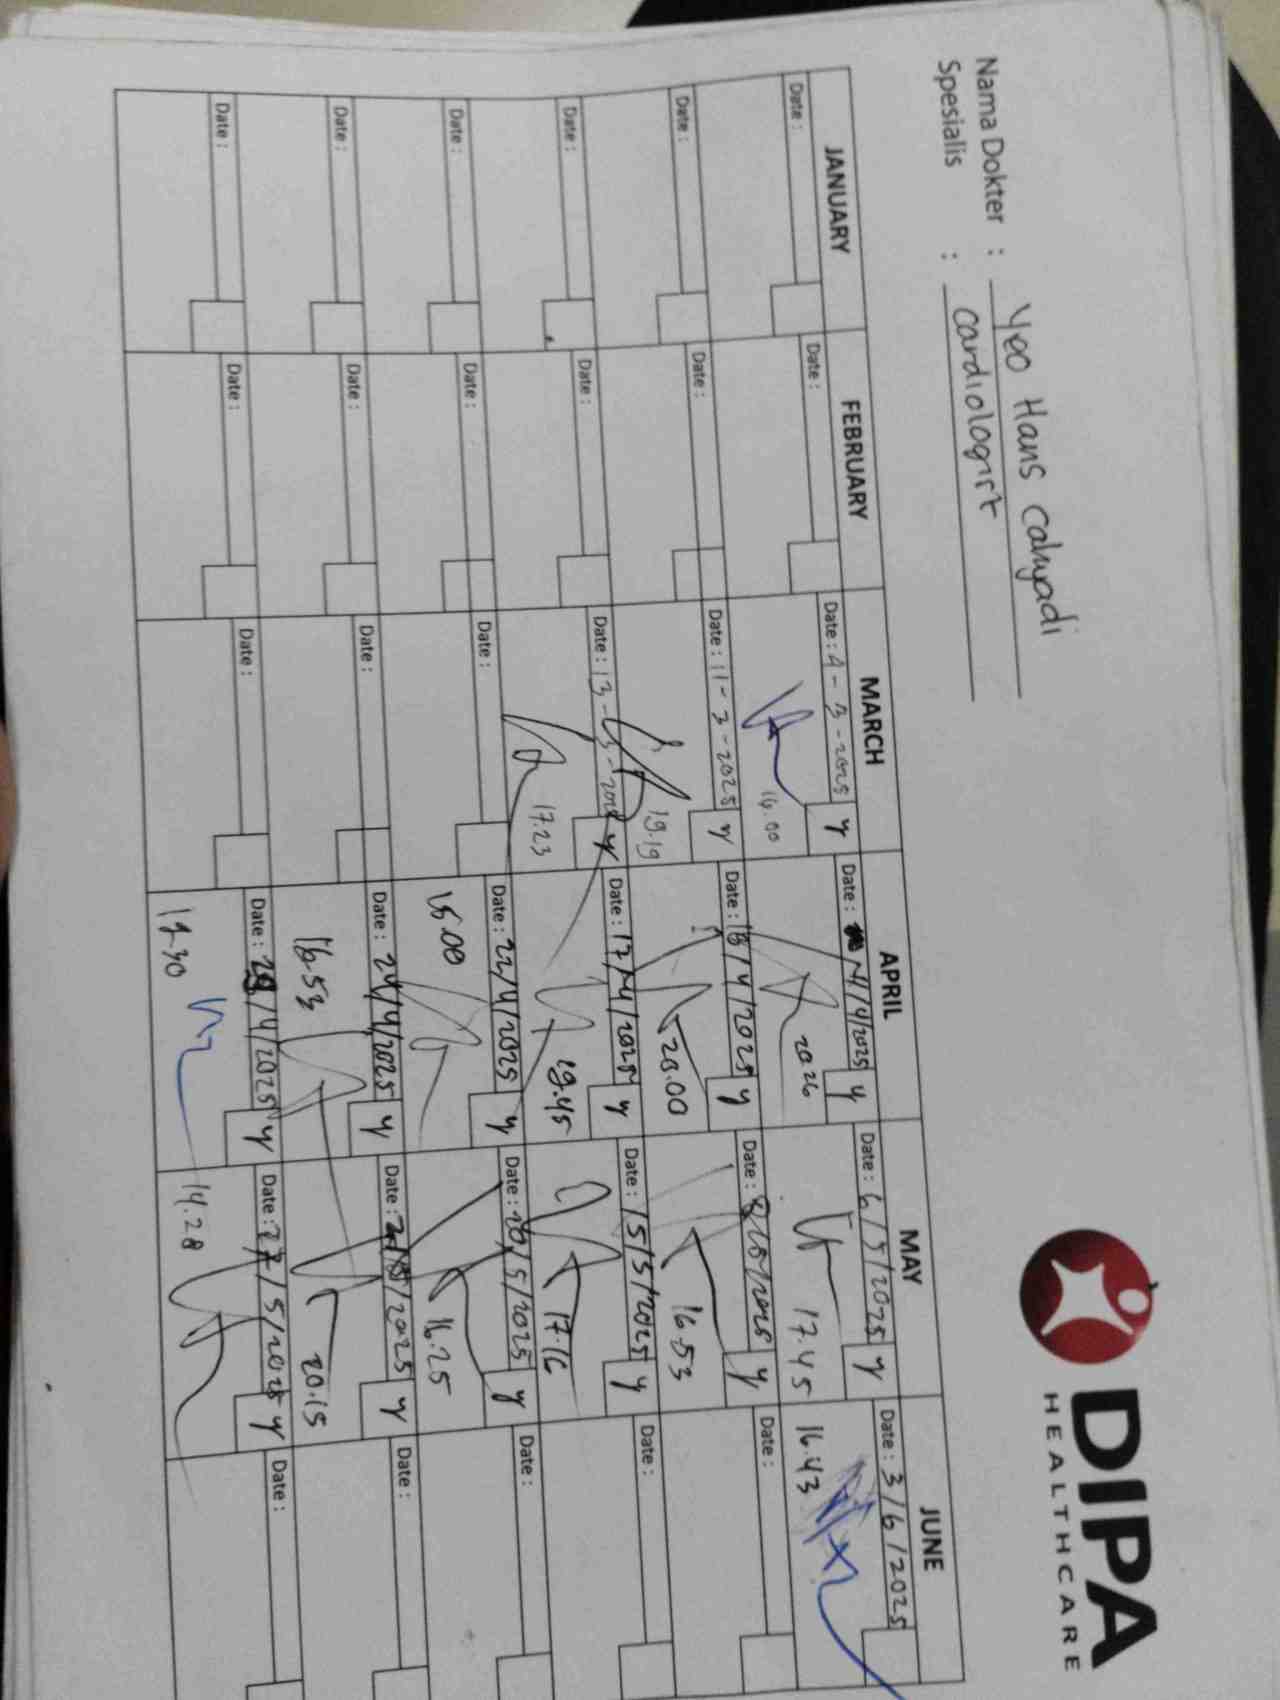 DIPA
HEALTHCARE
Nama Dokter : Yeo Hans Cahyadi
Spesialis : Cardiologist
JANUARY FEBRUARY MARCH APRIL MAY JUNE
Date : Date : Date : 4-3-2025 y Date : 4/4/2025 y Date : 6/5/2025 y Date : 3/6/2025
16.00 20.26 17.45 16.43
Date : Date : Date : 11-3-2025 y Date : /4/2025 y Date : 8/5/2025 y Date :
19.19 20.00 16.53
Date : Date : Date : 13-3-2025 y Date : 17/4/2025 y Date : 15/5/2025 y Date :
17.23 19.45 17.16
Date : Date : Date : Date : 22/4/2025 y Date : 20/5/2025 y Date :
15.00 16.25
Date : Date : Date : Date : 24/4/2025 y Date : /2025 y Date :
16.53 20.15
Date : Date : Date : Date : 29/4/2025 y Date : 27/5/2025 y Date :
17.30 14.28